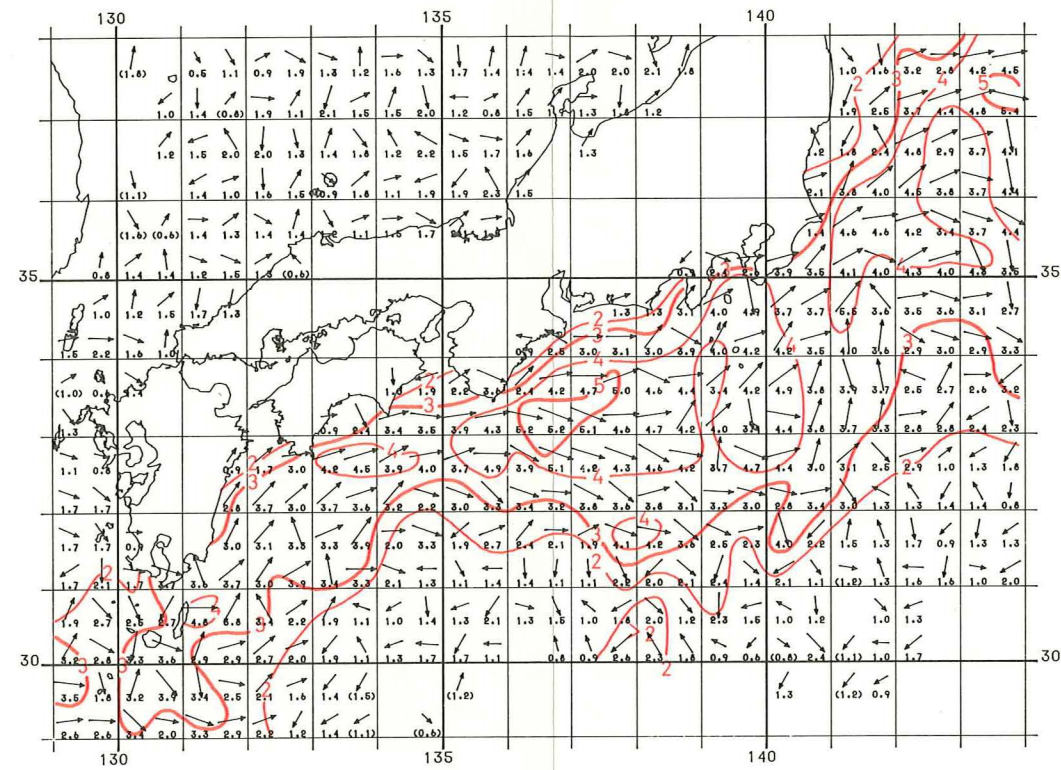 130 135 140
(1.8) 0.5 1.1 0.9 1.9 1.3 1.2 1.6 1.3 1.7 1.4 1.4 1.4 2.0 2.0 2.1 1.8 1.0 1.6 3.2 2.8 4.2 4.5
2 3 4 5
1.0 1.4 (0.8) 1.9 1.1 2.1 1.5 1.5 2.0 1.2 0.8 1.5 1.3 1.2 1.9 2.5 3.7 4.4 4.8 5.4
1.2 1.5 2.0 2.0 1.3 1.4 1.8 1.2 2.2 1.5 1.7 1.6 1.3 1.8 2.4 4.8 2.9 3.7 4.1
(1.1) 1.4 1.0 1.6 1.5 0.9 1.8 1.1 1.9 1.9 2.3 1.5 2.1 3.8 4.0 4.5 3.8 3.7
(1.6) (0.6) 1.4 1.3 1.4 1.4 1.1 1.5 1.7 1.4 4.6 4.6 4.2 3.4 3.7 4.4
35 0.8 1.4 1.4 1.2 1.5 (0.6) 3 3.9 3.5 4.1 4.0 4 4.3 4.0 4.8 3.5 35
1.0 1.2 1.5 1.7 1.3 1.3 1.3 3.1 4.0 4.9 3.7 3.7 3.6 3.5 3.6 3.1 2.7
2
3
1.5 2.2 1.6 1.0 0.9 2.5 3.0 3.1 3.0 3.9 4.0 4.2 4.2 3.5 4.0 3.6 2.9 3.0 2.9 3.3
4 4 3
(1.0) 1.9 2.2 3.6 2.4 4.2 4.7 5.0 4.6 4.4 3.4 4.2 4.9 3.8 3.9 3.7 2.5 2.7 2.6 3.2
2 3 5
1.3 0.9 2.4 3.4 3.5 3.9 4.3 5.2 5.2 5.1 4.6 4.7 4.2 4.0 4.4 3.8 3.7 3.3 2.8 2.8 2.4 2.3
1.1 0.9 1.7 3.0 4.2 4.5 3.9 4.0 3.7 4.9 3.9 5.1 4.2 4.3 4.6 4.2 3.7 4.7 4.4 3.0 3.1 2.5 2.9 1.0 1.3 1.8
2 3 4 4 2
1.7 1.7 2.8 3.7 3.0 3.7 3.6 3.2 2.2 3.0 3.3 3.4 3.2 3.8 3.6 3.8 3.1 3.3 3.0 2.8 3.4 3.0 1.3 1.3 1.4 1.4 0.8
1.7 1.7 3.0 3.1 3.3 3.3 3.9 2.0 3.3 1.9 2.7 2.4 2.1 1.9 4.1 4.2 3.6 2.5 2.3 4.0 2.2 1.5 1.3 1.7 0.9 1.3 1.3
3 4
2 2
1.7 2.1 1.7 3.6 3.7 3.0 3.9 3.4 3.3 2.1 1.3 1.1 1.4 1.1 2.2 2.0 2.1 2.4 1.4 2.1 1.1 (1.2) 1.3 1.6 1.6 1.0 2.0
1.9 2.7 2.5 4.8 3.8 3.4 2.2 1.9 1.1 1.1 1.0 1.4 1.3 2.1 1.3 1.5 1.0 1.8 2.0 1.2 2.3 1.5 1.0 1.2 1.0 1.3
4 3 2
30 3.2 2.8 3.3 3.6 2.9 2.9 2.7 2.0 1.9 1.1 1.3 1.7 1.7 1.1 0.8 0.9 2.6 2.3 1.6 0.9 0.6 (0.8) 2.4 (1.1) 1.0 1.7 30
3 3 2
3.5 1.8 3.2 3.9 3.4 2.5 2.1 1.6 1.4 (1.5) (1.2) 1.3 (1.2) 0.9
2
2.6 2.6 3.4 2.0 3.3 2.9 2.2 1.2 1.4 (1.1) (0.6)
130 135 140